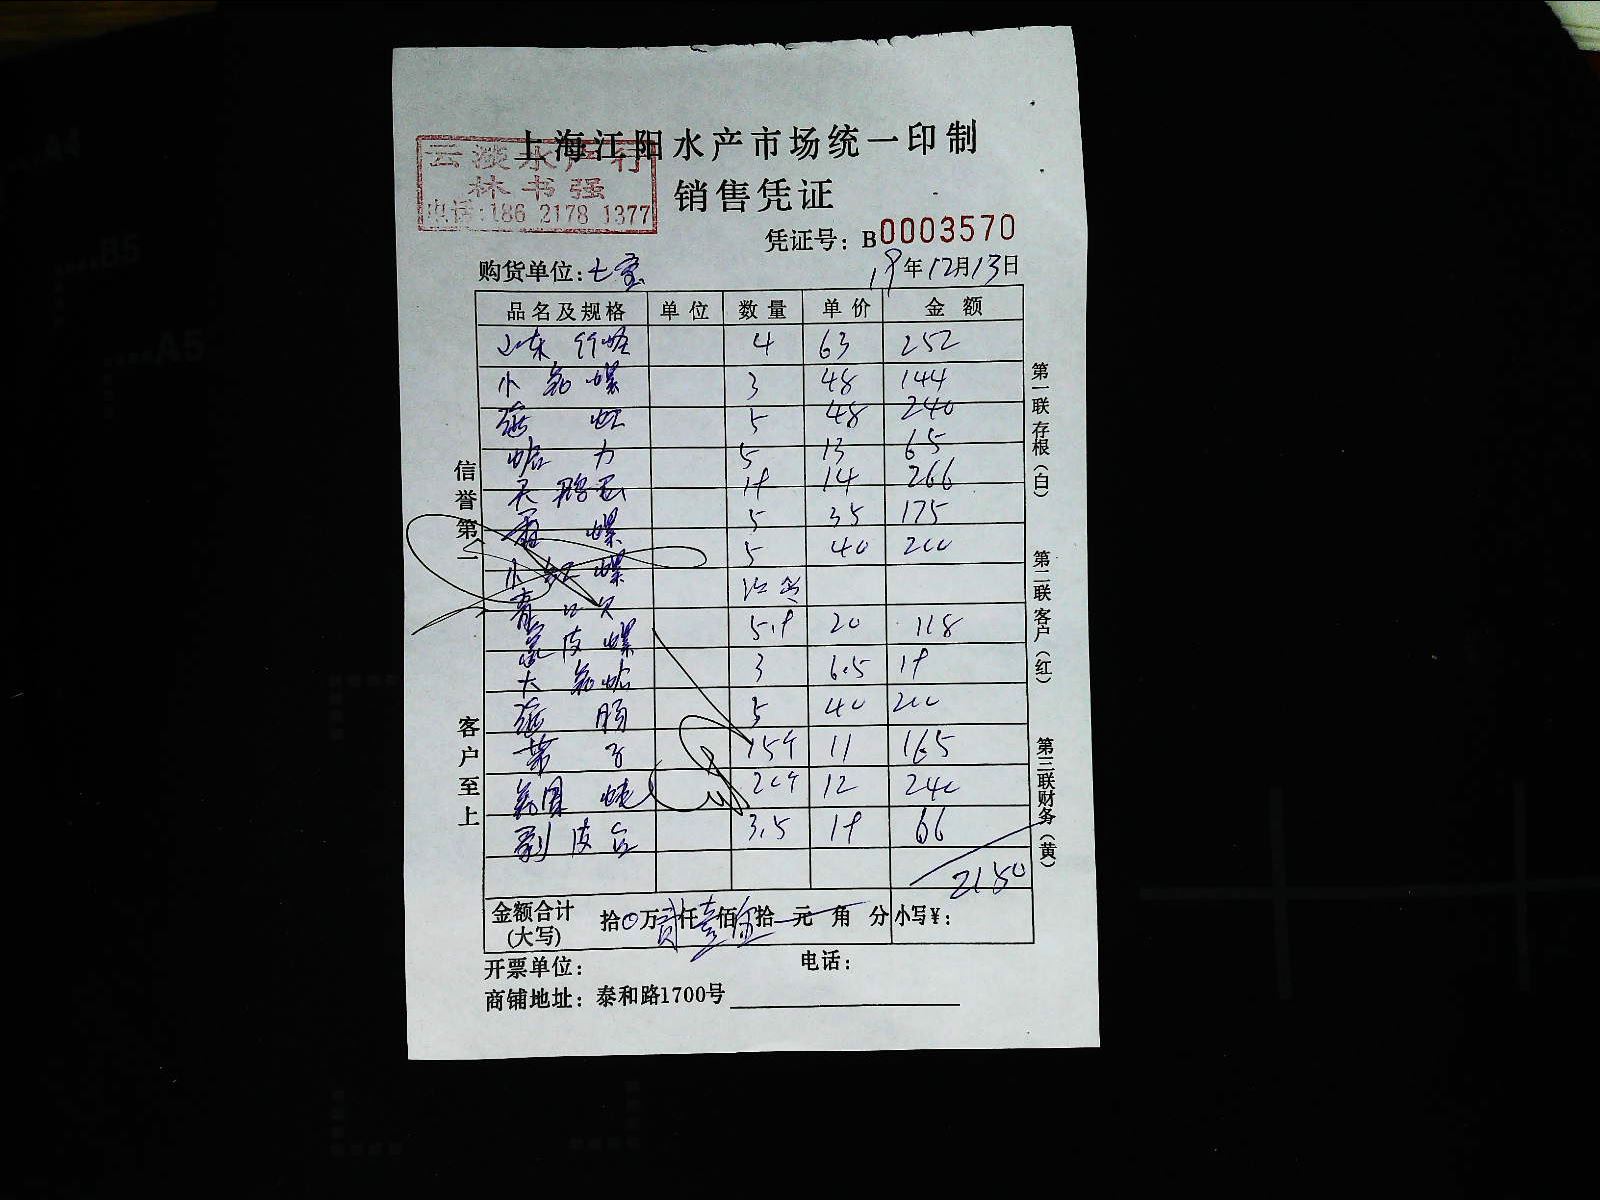 上海江阳水产市场统一印制
云淡水产行
林书强
电话:186 2178 1377
销售凭证
凭证号: B0003570
购货单位: 七宝 19年12月13日
品名及规格 单位 数量 单价 金额
山东 4 63 252
小 螺 3 48 144
5 48 240
5 13 65
天鹅 19 14 266
螺 5 35 175
小红螺 5 40 200
青口
皮螺 5.9 20 118
大 3 6.5 19
肠 5 40 200
带子 15个 11 165
20个 12 240
剥皮 3.5 19 66
2150
金额合计(大写) 拾0万贰仟壹佰伍拾 元 角 分 小写¥:
开票单位: 电话:
商铺地址: 泰和路1700号
信誉第一
客户至上
第一联 存根(白)
第二联 客户(红)
第三联 财务(黄)